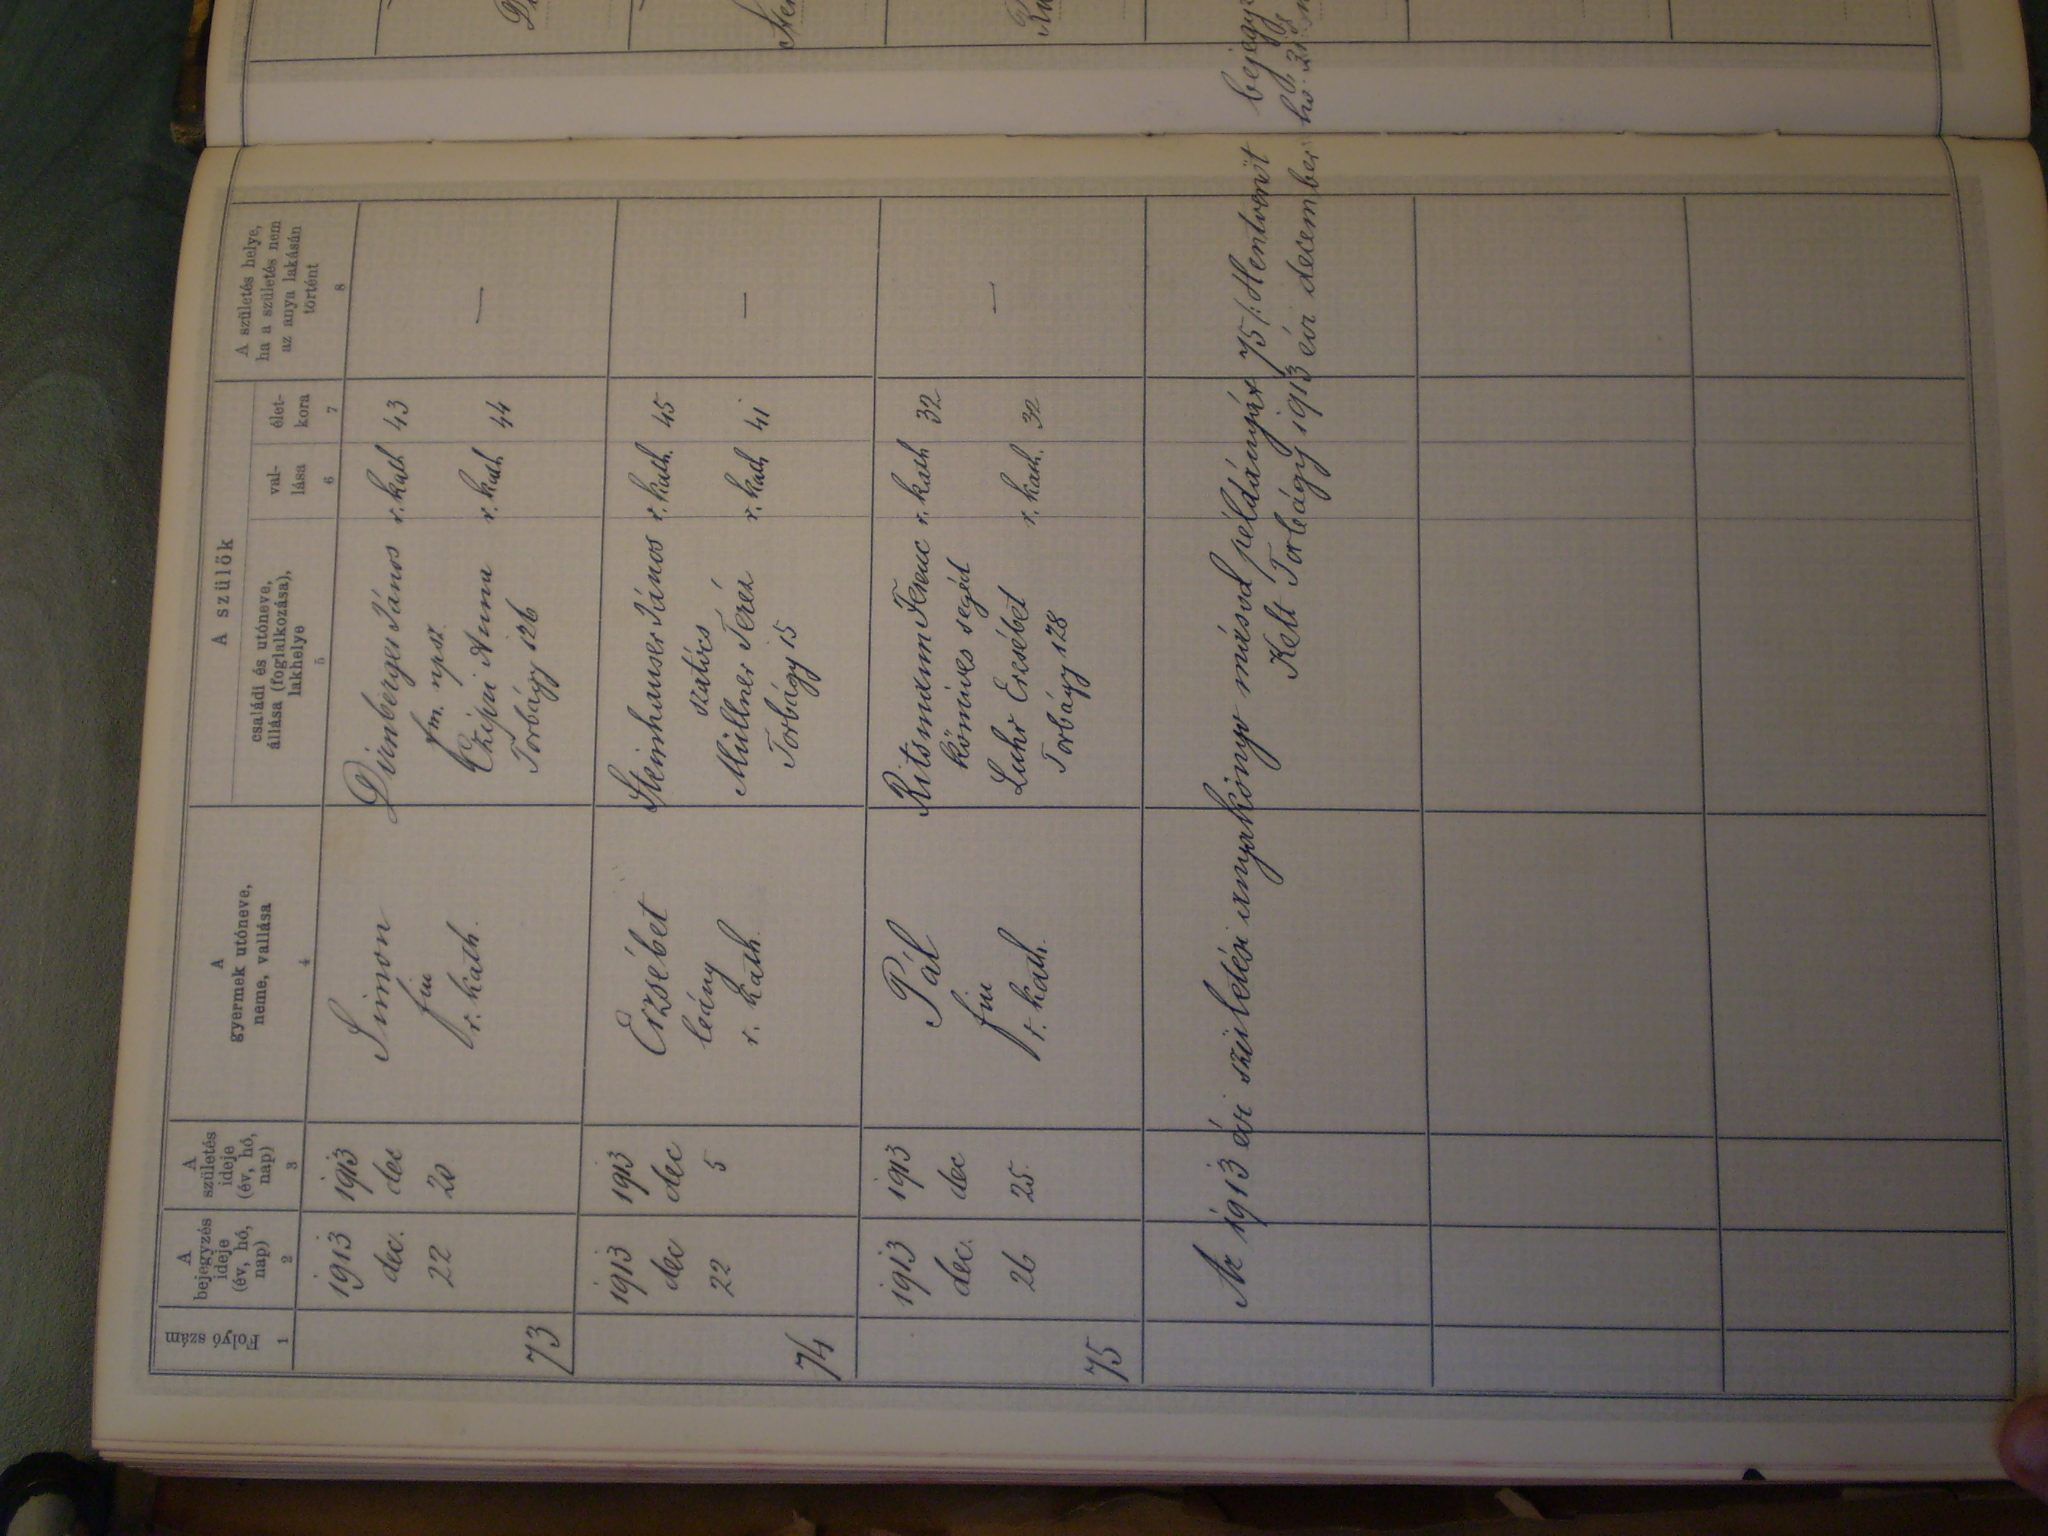 Folyó szám
1
A
bejegyzés
ideje
(év, hó,
nap)
2
A
születés
ideje
(év, hó,
nap)
3
A
gyermek utóneve,
neme, vallása
4
A szülők
családi és utóneve,
állása (foglalkozása),
lakhelye
5
val-
lása
6
élet-
kora
7
A születés helye,
ha a születés nem
az anya lakásán
történt
8
73
1913
dec.
22
1913
dec
20
Simon
fiu
r. kath.
Dirnberger János r. kath 43
fm. npsz.
Czipri Anna r. kath 44
Torbágy 126
—
74
1913
dec
22
1913
dec
5
Erzsébet
leány
r. kath.
Steinhauser János r. kath. 45
szatócs
Müllner Teréz r. kath 41
Torbágy 15
—
75
1913
dec.
26
1913
dec
25.
Pál
fiu
r. kath.
Ritsmann Ferenc r. kath 32
kőmives segéd
Luhr Erzsébet r. kath. 32
Torbágy 128
—
Az 1913 évi születési anyakönyv másod példányát 75 /: Hentvenöt bejegyz
Kelt Torbágy 1913 évi december hó 31